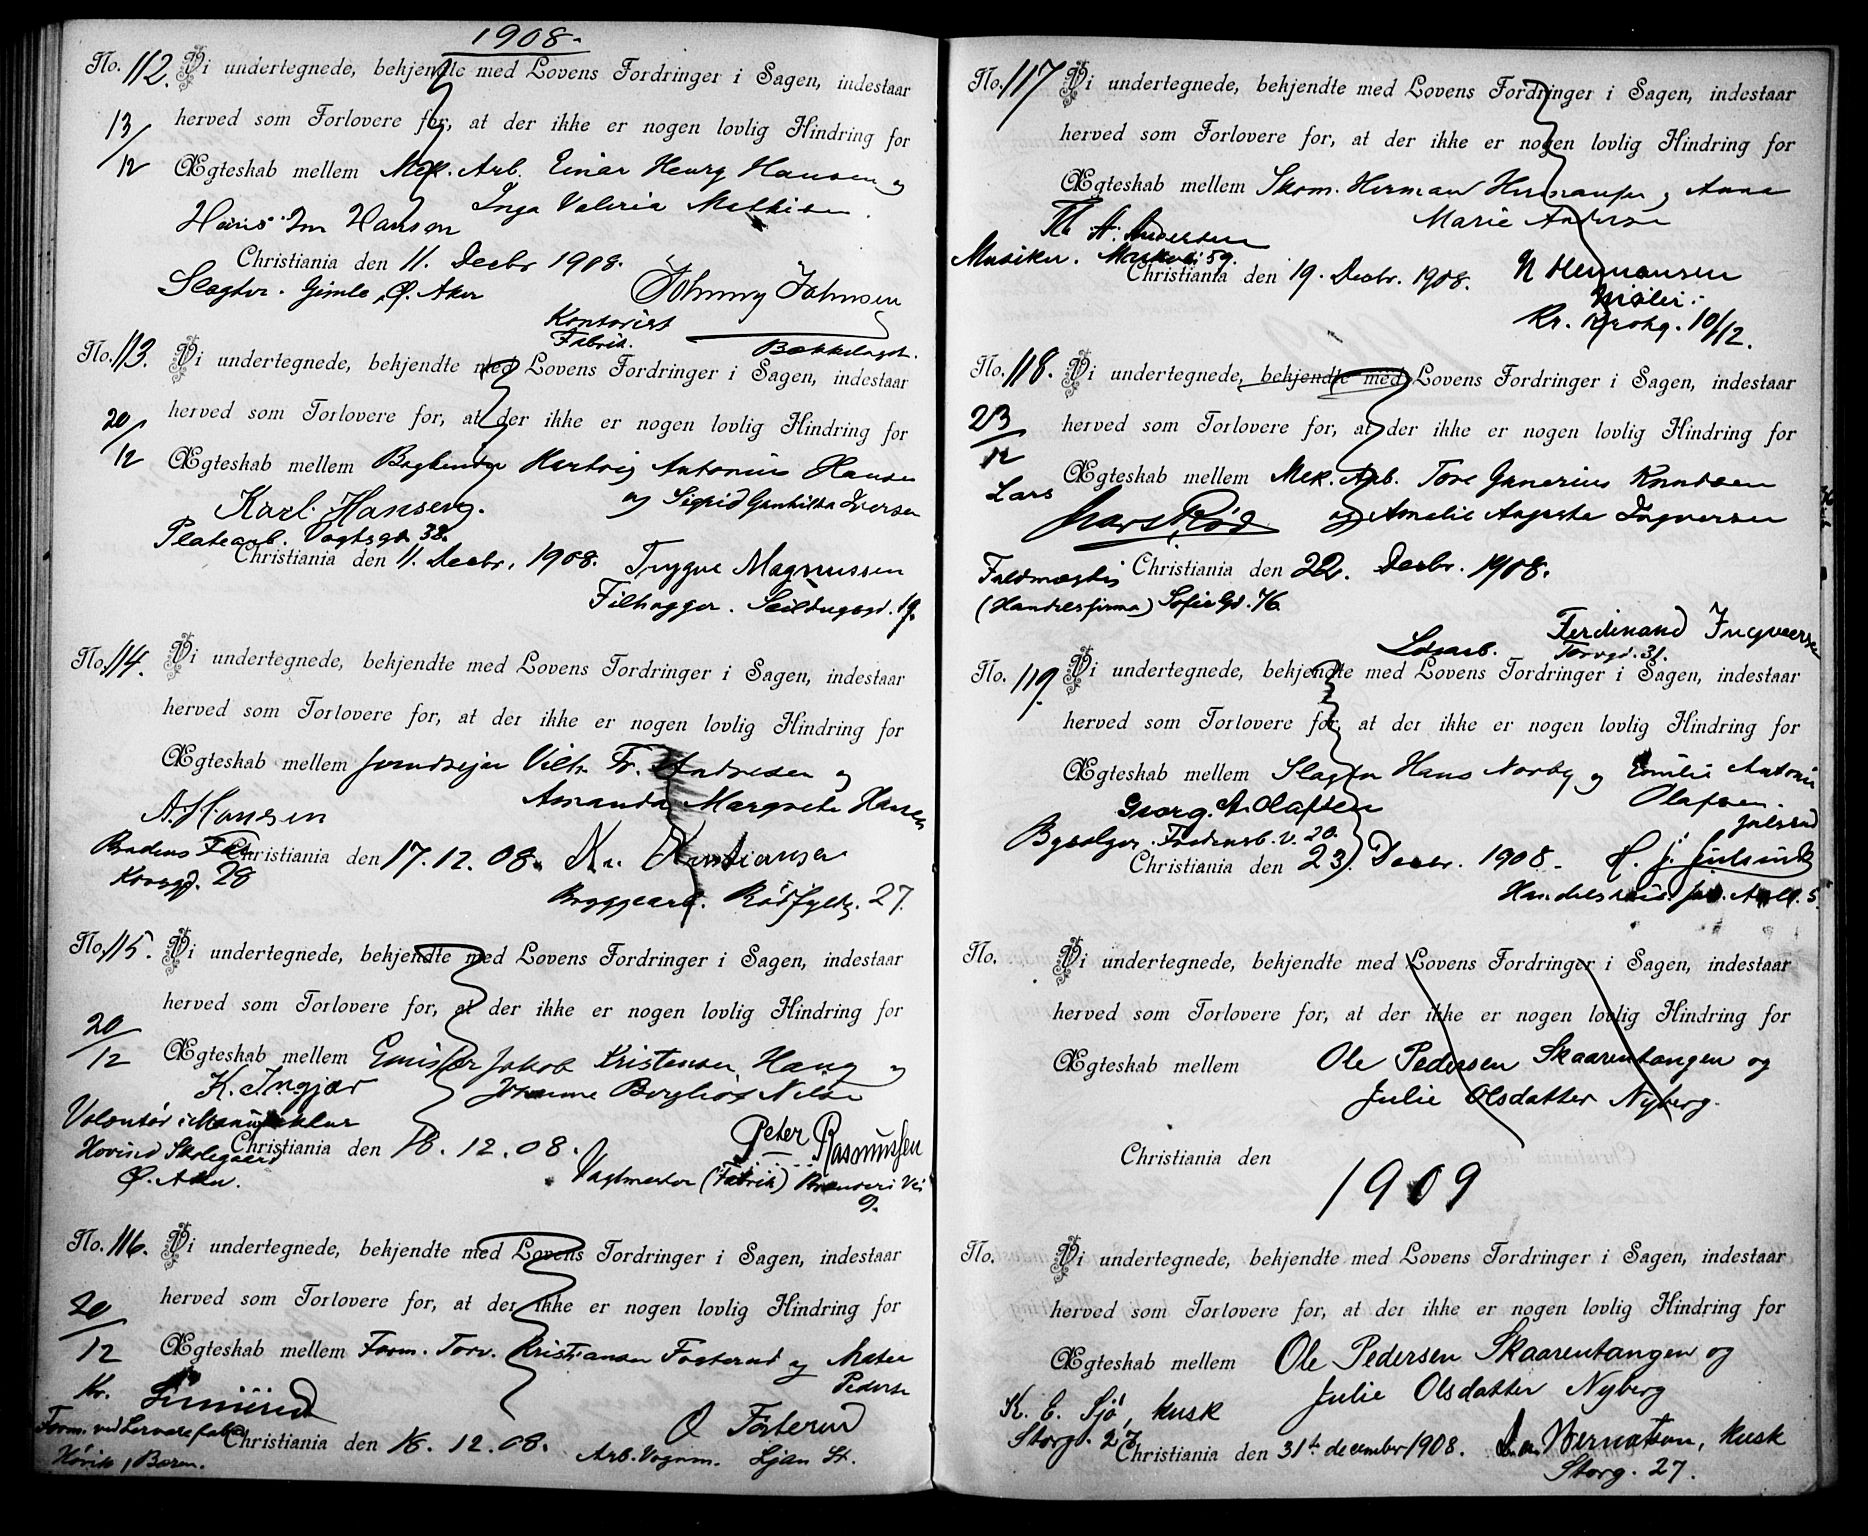 1908.
No. 112. Vi undertegnede, bekjendte med Lovens Fordringer i Sagen, indestaar
13/12 herved som Forlovere for, at der ikke er nogen lovlig Hindring for
Ægteskab mellem Mek. Arb. Einar Henry Hansen og
Inga Valeria Mathisen.
Hans Hansen
Christiania den 11. Decbr 1908.
Slagter. Gimle, Ø. Aker
Johnny Johnsen
Kontorist
Fabrik.
Bækkelaget.
No. 113. Vi undertegnede, bekjendte med Lovens Fordringer i Sagen, indestaar
20/12 herved som Forlovere for, at der ikke er nogen lovlig Hindring for
Ægteskab mellem Hartvig Antonius Hansen
og Sigrid Gunhilda Iversen
Karl. Hansen.
Platearb. Vogtsgd. 38.
Christiania den 11. Decbr. 1908.
Trygve Magnussen
Filhugger. Seildugsgd. 19.
No. 114. Vi undertegnede, bekjendte med Lovens Fordringer i Sagen, indestaar
herved som Forlovere for, at der ikke er nogen lovlig Hindring for
Ægteskab mellem Vilh. Fr. Andresen og
Amanda Margrete Hansen
A. Hansen
Christiania den 17.12.08.
28
Kr. Kristiansen
Bryggearb. 27.
No. 115. Vi undertegnede, bekjendte med Lovens Fordringer i Sagen, indestaar
herved som Forlovere for, at der ikke er nogen lovlig Hindring for
20/12 Ægteskab mellem Emissær Jakob Kristensen Haug og
Johanne Borghild Nilsen
K. Ingjer
Volontør i Manufaktur
Hovind Skolegaard
Ø. Aker.
Christiania den 18.12.08.
Peter Rasmussen
Vagtmester (Fabrik) Brenneri Vei
9.
No. 116. Vi undertegnede, bekjendte med Lovens Fordringer i Sagen, indestaar
herved som Forlovere for, at der ikke er nogen lovlig Hindring for
20/12 Ægteskab mellem Form. Torv. Kristiansen Fosterud og
Pederse
Kr.
Form. ved Lervarefabr.
Christiania den 18.12.08.
Høvik, Bærum.
O Fosterud
Arb. Vognm. Ljan St.
No. 117 Vi undertegnede, bekjendte med Lovens Fordringer i Sagen, indestaar
herved som Forlovere for, at der ikke er nogen lovlig Hindring for
Ægteskab mellem Skom. Herman Hermansen og Anna
Marie Andersen
Th. A. Andersen
Musiker. 59.
Christiania den 19. Decbr. 1908.
N Hermansen
Kr. Krohg. 10/12.
No. 118. Vi undertegnede, bekjendte med Lovens Fordringer i Sagen, indestaar
23/12 herved som Forlovere for, at der ikke er nogen lovlig Hindring for
Ægteskab mellem Mek. Arb. Tore Gunerius Knudsen
og Amalie Augusta Ingversen
Lars
Lars Rød
Fuldmægtig
(Handelsfirma) Sofie Gd. 76.
Christiania den 22. Decbr. 1908.
Ferdinand Ingversen
Torvgd. 31.
No. 119. Vi undertegnede, bekjendte med Lovens Fordringer i Sagen, indestaar
herved som Forlovere for, at der ikke er nogen lovlig Hindring for
Ægteskab mellem Slagter Hans Norby og Emilie Antonie
Olafsen.
Georg. A. Olafsen
20.
Christiania den 23. Decbr. 1908.
H. J. Julsrud
Julsrud
No. Vi undertegnede, bekjendte med Lovens Fordringer i Sagen, indestaar
herved som Forlovere for, at der ikke er nogen lovlig Hindring for
Ægteskab mellem Ole Pedersen Skaarentangen og
Julie Olsdatter Nyberg.
Christiania den
1909
No. Vi undertegnede, bekjendte med Lovens Fordringer i Sagen, indestaar
herved som Forlovere for, at der ikke er nogen lovlig Hindring for
Ægteskab mellem Ole Pedersen Skaarentangen og
Julie Olsdatter Nyberg
K. E. Sjö, kusk
Storg. 27
Christiania den 31te december 1908.
Bernatson, kusk
Storg. 27.